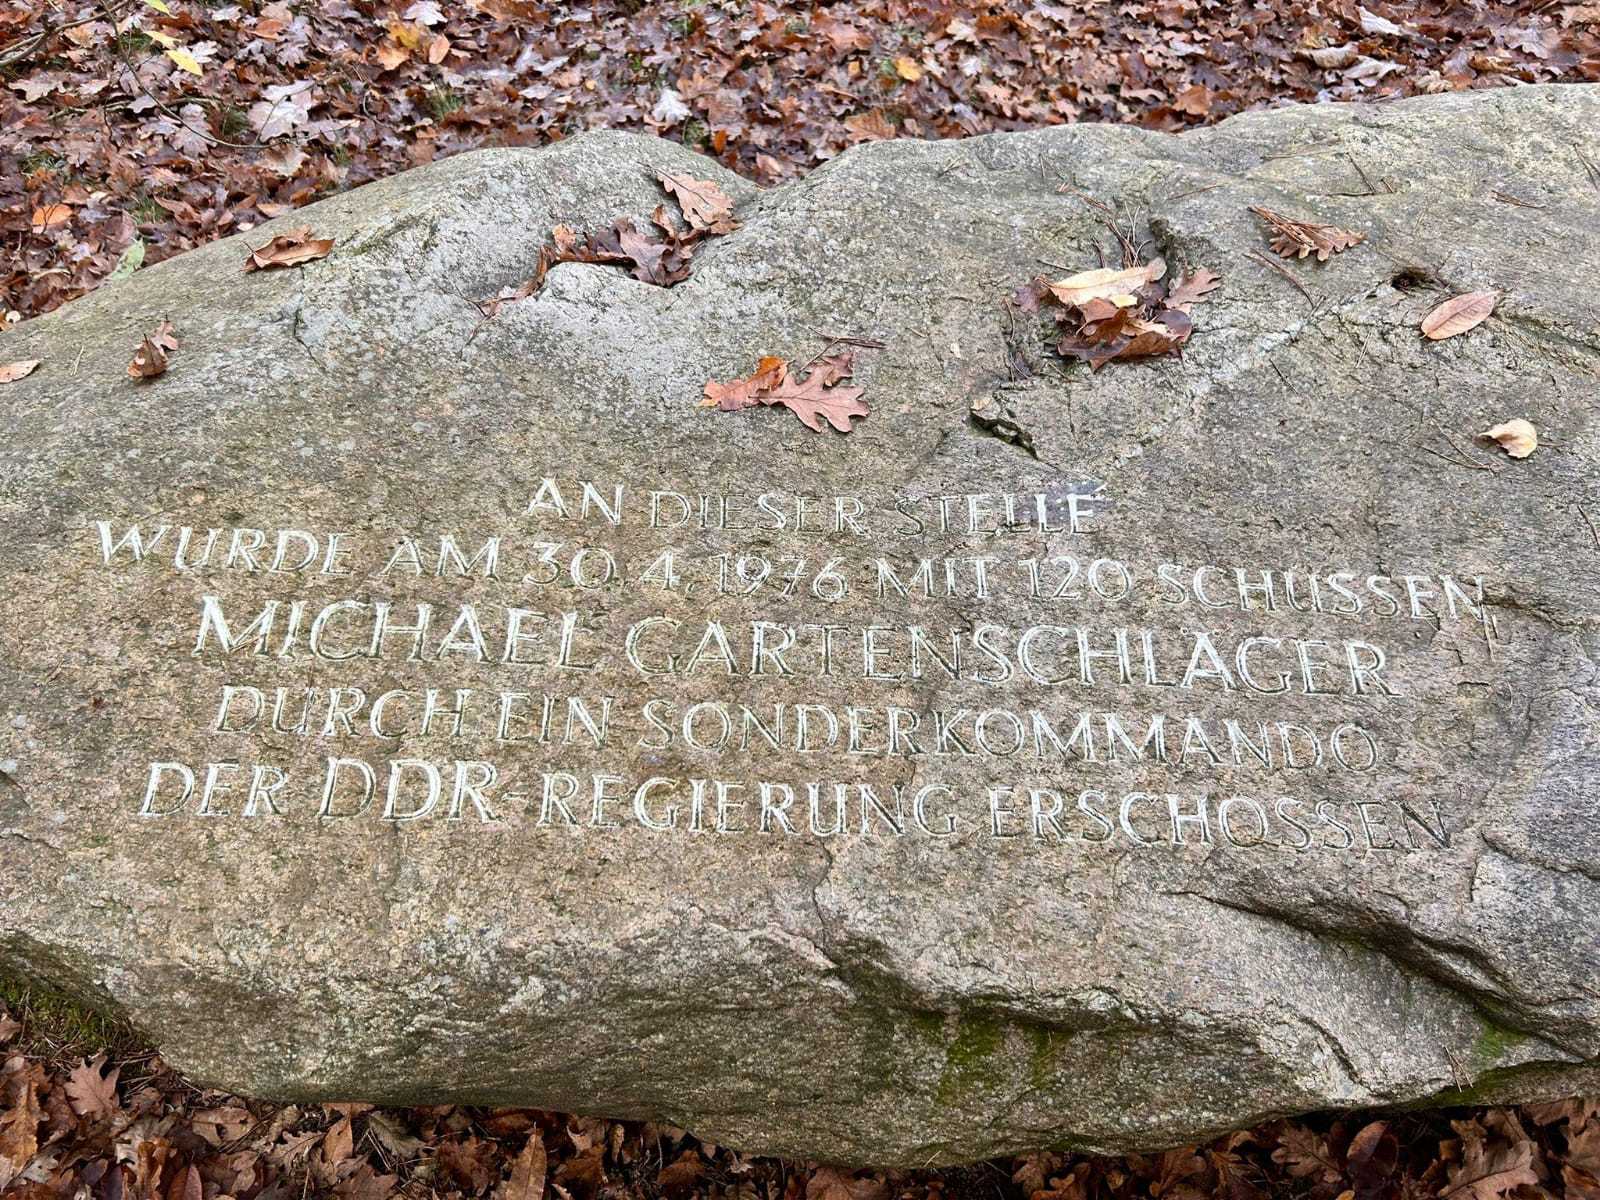 AN DIESER STELLE
WURDE AM 30.4.1976 MIT 120 SCHUSSEN
MICHAEL GARTENSCHLÄGER
DURCH EIN SONDERKOMMANDO
DER DDR-REGIERUNG ERSCHOSSEN